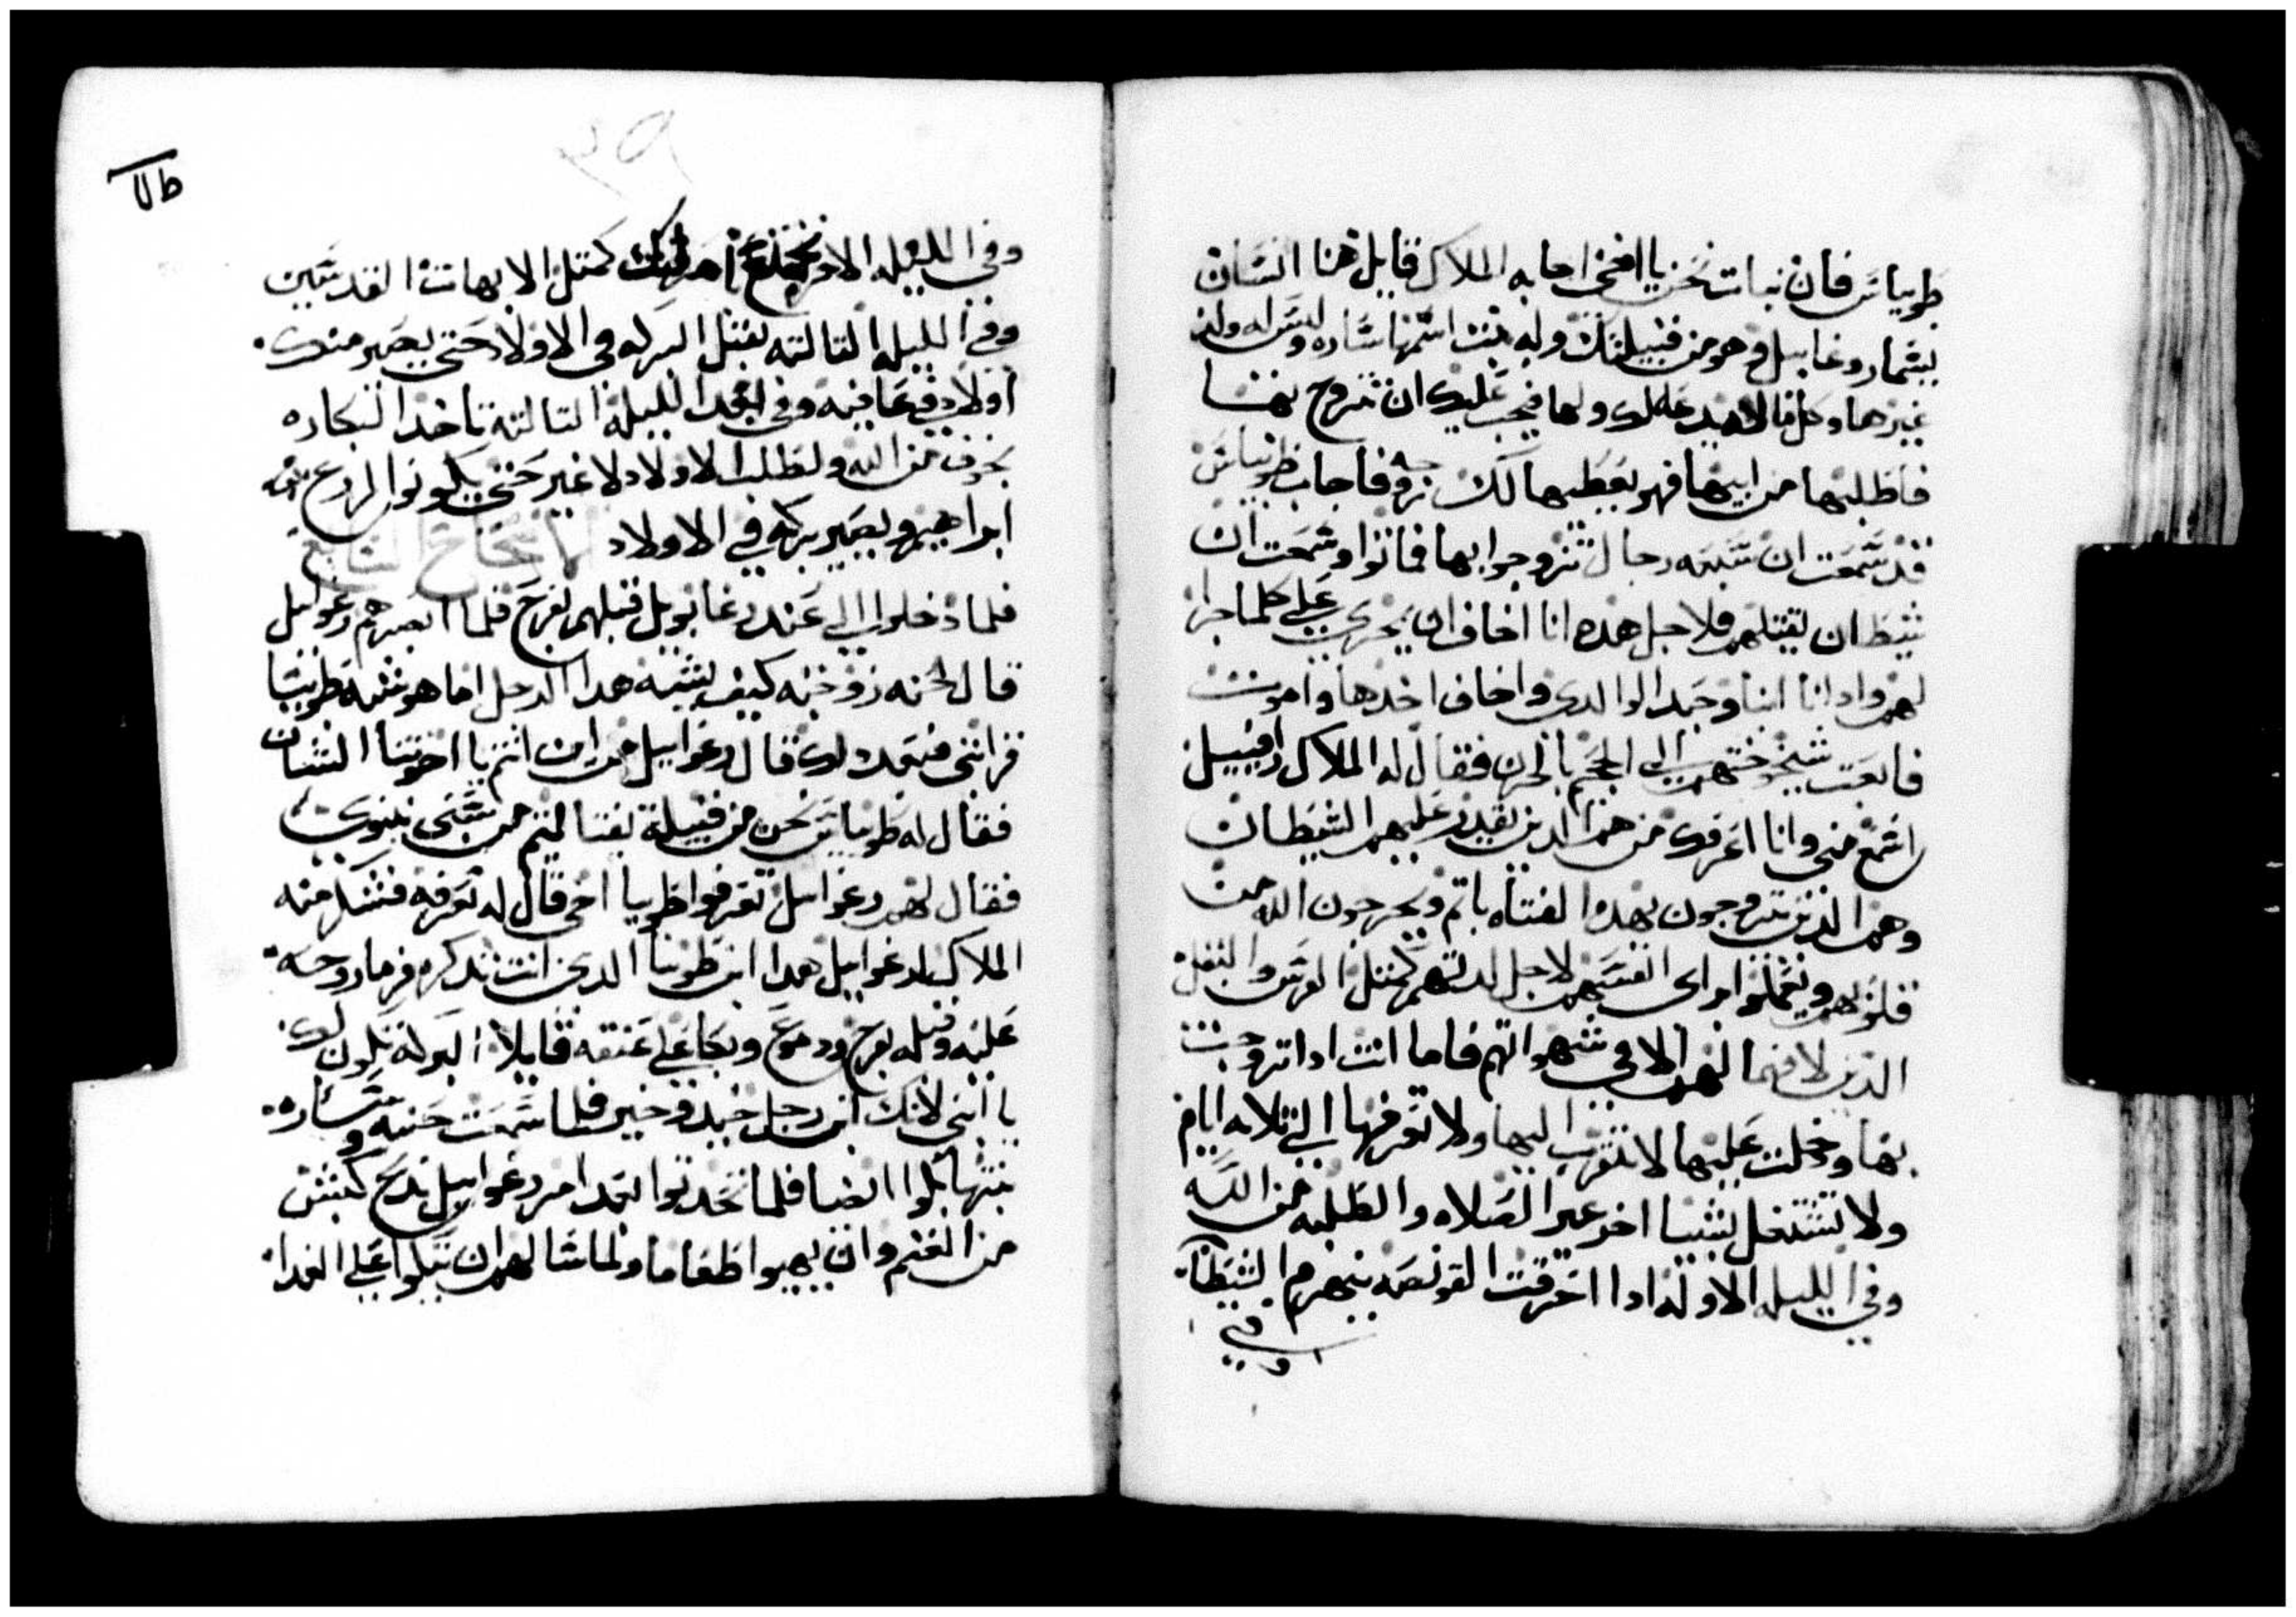 طوبياس فان نبات نحن يا اخي اجابه الملاك قايل هنا انسان
يسما روغاييل وهو من قبيلتك وله بنت اسمها ساره وليس له ولد
غيرها وكل ماله يد عه لك ولها فيجب عليك ان تتزوج بها
فاطلبها من ابيها فهو يعطيها لك زوجه فاجاب طوبياس
قد سمعت ان سبعه رجال تزوجوا بها فماتوا وسمعت ان
شيطان يقتلهم فلاجل هده انا اخاف ان يجري علي كلما جرا
لهم وادانا ابنا وحيدا لوالدي واخاف اخدها واموت
فابعت شيخوختهم الي الجحيم بالحزن فقال له الملاك رافييل
اسمع مني وانا اعرفك من هم الدين يقدر عليهم الشيطان
وهم الدين يتزوجون بهدا الفتاه باتم ويخرجون الله من
قلوبهم ويعملوا مراي انفسهم لاجل لدتهم كمتل الفرس والبغل
الدين لا فهما لهم الا في شهواتهم فاما انت ادا تزوجت
بها ودخلت عليها لا تتقرب اليها ولا تعرفها الي تلاته ايام
ولا تشتغل بشيا اخر غير الصلاه والطلبه من الله
وفي الليله الاوله ادا احرقت القونصه ينهزم الشيطان
وفي
طلا
٢٩
وفي الليله الاخري كمتل الابهات القديسين
وفي الليله التالته تقبل البركه في الاولاد حتي يصير منك
اولاد في عافيه وفي بعد الليله التالته تاخد البكاره
بخوف من الله ولطلب الاولاد لا غير حتي يكونوا لزرع
ابراهيم ويصير بركه في الاولاد الاصحاح السابع
فلما دخلوا الي عند رغاويل قبلهم بفرح فلما ابصرهم رغواييل
قال لحنه زوجته كيف يشبه هدا الرجل اما هو شبه طوبيا
قرابتي فبعد دلك قال رغواييل من اين انتم يا اخوتنا الشبان
فقال له طوبياس نحن من قبيلة نفتاليم من سبي نينوي
فقال لهم رغواييل تعرفوا طوبيا اخي قال له نعرفه فشكر منه
الملاك لرغواييل هدا ابن طوبيا الدي انت تدكره فرما روحه
عليه وقبله بفرح ودموع وبكا علي عنقه قايلا البركه تكون لك
يا ابني لانك ابن رجل جيد وخير فلما سمعت حنه وساره
بنتها بكوا ايضا فلما تحدتوا بعد امر رغواييل بدبح كبش
من الغنم وان يهيوا طعاما ولما سا لهم ان يتكوا علي الغدا